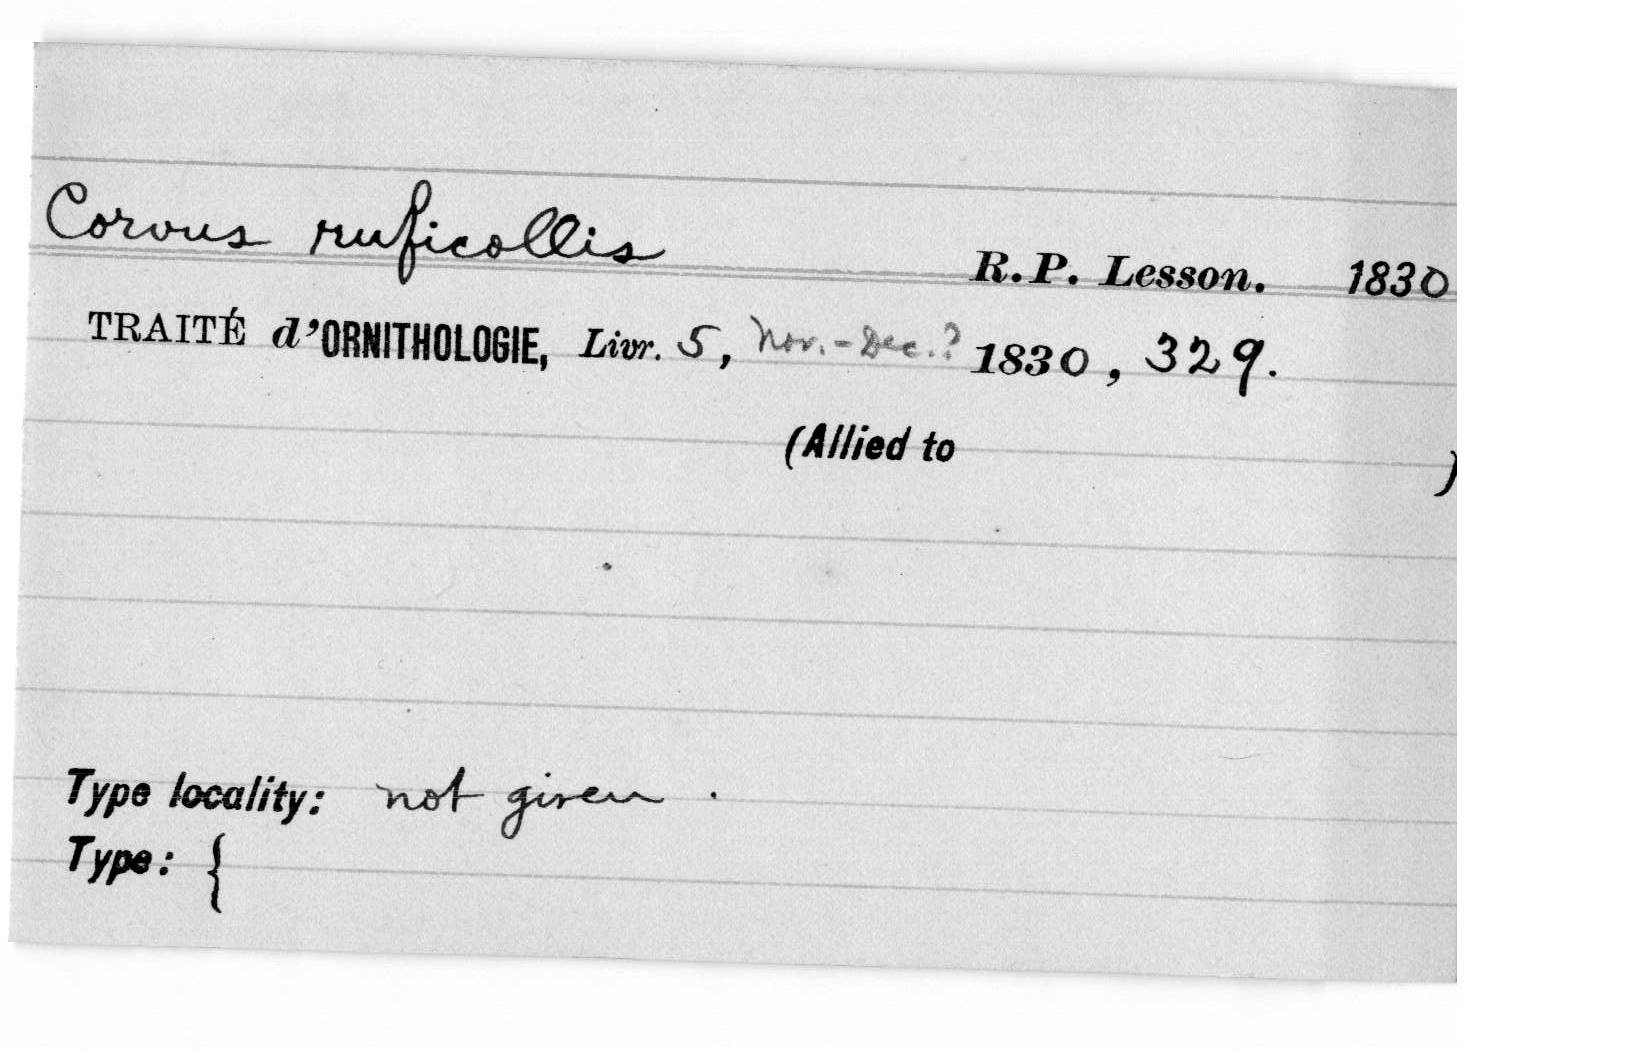 Corvus ruficollis R. P. Lesson. 1830
TRAITÉ d'ORNITHOLOGIE, Livr. 5, Nov.-Dec.? 1830, 329.
(Allied to )
Type locality: not given.
Type: {